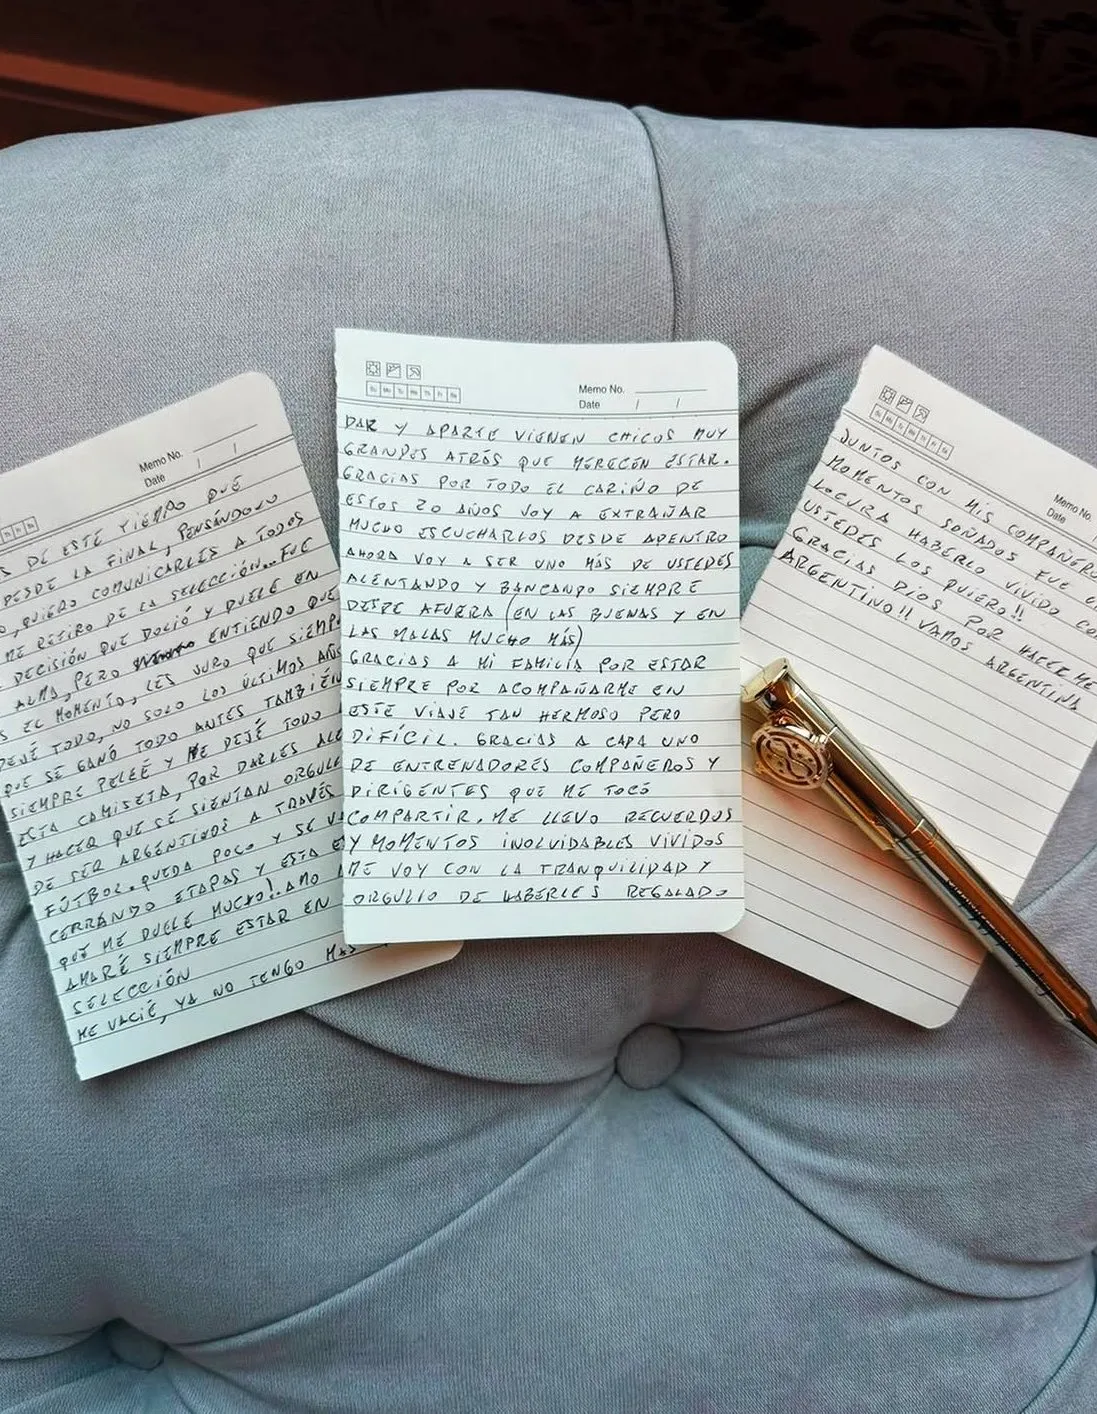 Memo No.
Date / /
S DE ESTE TIEMPO QUE
DESDE LA FINAL, PENSÁNDOLO
O, QUIERO COMUNICARLES A TODOS
ME RETIRO DE LA SELECCIÓN... FUE
DECISIÓN QUE DOLIÓ Y DUELE EN
ALMA, PERO ENTIENDO QUE
S EL MOMENTO, LES JURO QUE SIEMP
DEJÉ TODO, NO SOLO LOS ÚLTIMOS AÑOS
QUE SE GANÓ TODO ANTES TAMBIÉN
SIEMPRE PELEÉ Y ME DEJÉ TODO
ESTA CAMISETA, POR DARLES ALE
Y HACER QUE SE SIENTAN ORGULL
DE SER ARGENTINOS A TRAVÉS
FÚTBOL. QUEDA POCO Y SE V
CERRANDO ETAPAS Y ESTA E
QUE ME DUELE MUCHO! AMO
AMARÉ SIEMPRE ESTAR EN
SELECCIÓN
ME VACIÉ, YA NO TENGO MAS
Memo No.
Su Mo Tu We Th Fr Sa
Date / /
DAR Y APARTE VIENEN CHICOS MUY
GRANDES ATRÁS QUE MERECEN ESTAR.
GRACIAS POR TODO EL CARIÑO DE
ESTOS 20 AÑOS VOY A EXTRAÑAR
MUCHO ESCUCHARLOS DESDE ADENTRO
AHORA VOY A SER UNO MÁS DE USTEDES
ALENTANDO Y BANCANDO SIEMPRE
DESDE AFUERA (EN LAS BUENAS Y EN
LAS MALAS MUCHO MÁS)
GRACIAS A MI FAMILIA POR ESTAR
SIEMPRE POR ACOMPAÑARME EN
ESTE VIAJE TAN HERMOSO PERO
DIFÍCIL. GRACIAS A CADA UNO
DE ENTRENADORES COMPAÑEROS Y
DIRIGENTES QUE ME TOCÓ
COMPARTIR. ME LLEVO RECUERDOS
Y MOMENTOS INOLVIDABLES VIVIDOS
ME VOY CON LA TRANQUILIDAD Y
ORGULLO DE HABERLES REGALADO
Memo No.
Su Mo Tu We Th Fr Sa
Date
JUNTOS CON MIS COMPAÑERO
MOMENTOS SOÑADOS FUE U
LOCURA HABERLO VIVIDO CO
USTEDES LOS QUIERO!!
GRACIAS DIOS POR HACERME
ARGENTINO!! VAMOS ARGENTINA